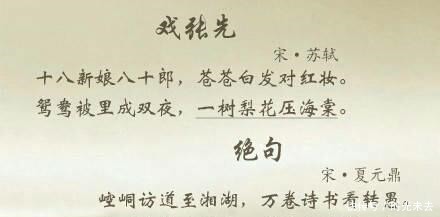 戏张先
宋·苏轼
十八新娘八十郎，苍苍白发对红妆。
鸳鸯被里成双夜，一树梨花压海棠。
绝句
宋·夏元鼎
崆峒访道至湘湖，万卷诗书看转愚。